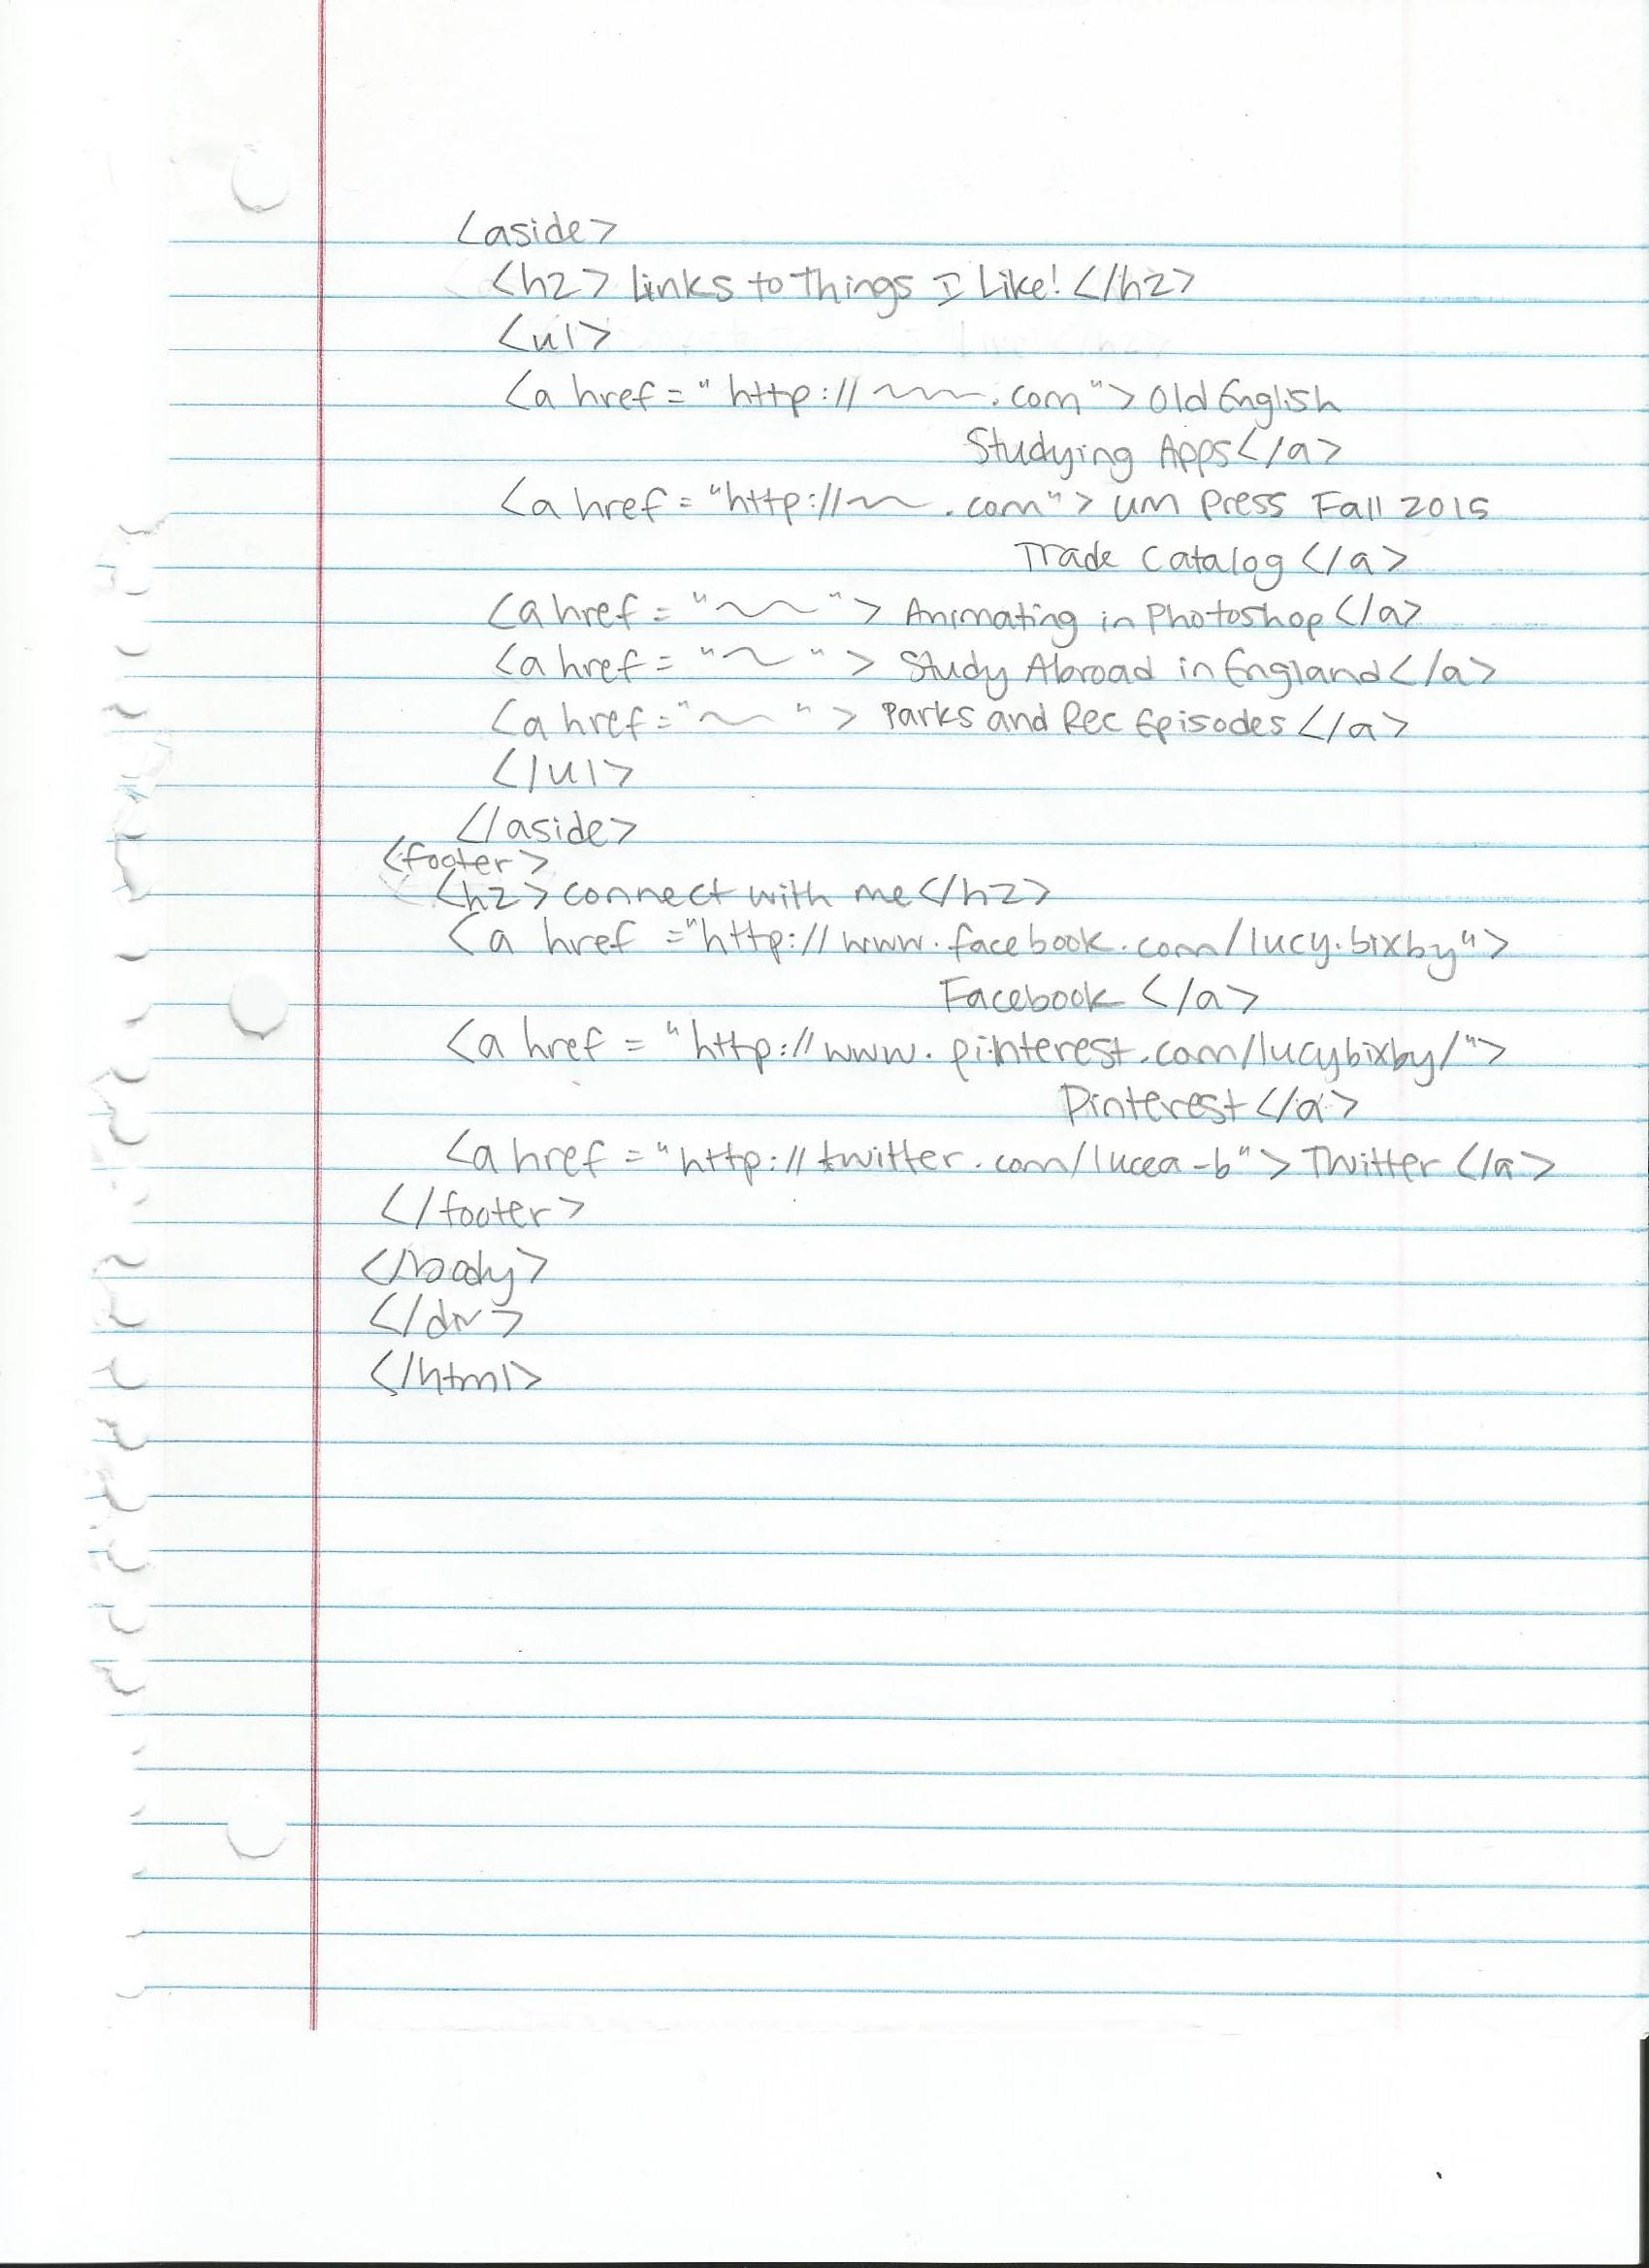 <aside>
<h2> Links to Things I Like! </h2>
<ul>
<a href = "http://~~~.com"> Old English
Studying Apps </a>
<a href = "http://~~.com"> UM Press Fall 2015
Trade Catalog </a>
<a href = "~~"> Animating in Photoshop </a>
<a href = "~"> Study Abroad in England </a>
<a href = "~~"> Parks and Rec Episodes </a>
</ul>
</aside>
<footer>
<h2> connect with me </h2>
<a href = "http://www.facebook.com/lucy.bixby">
Facebook </a>
<a href = "http://www.pinterest.com/lucybixby/">
Pinterest </a>
<a href = "http://twitter.com/lucea-b"> Twitter </a>
</footer>
</body>
</div>
</html>